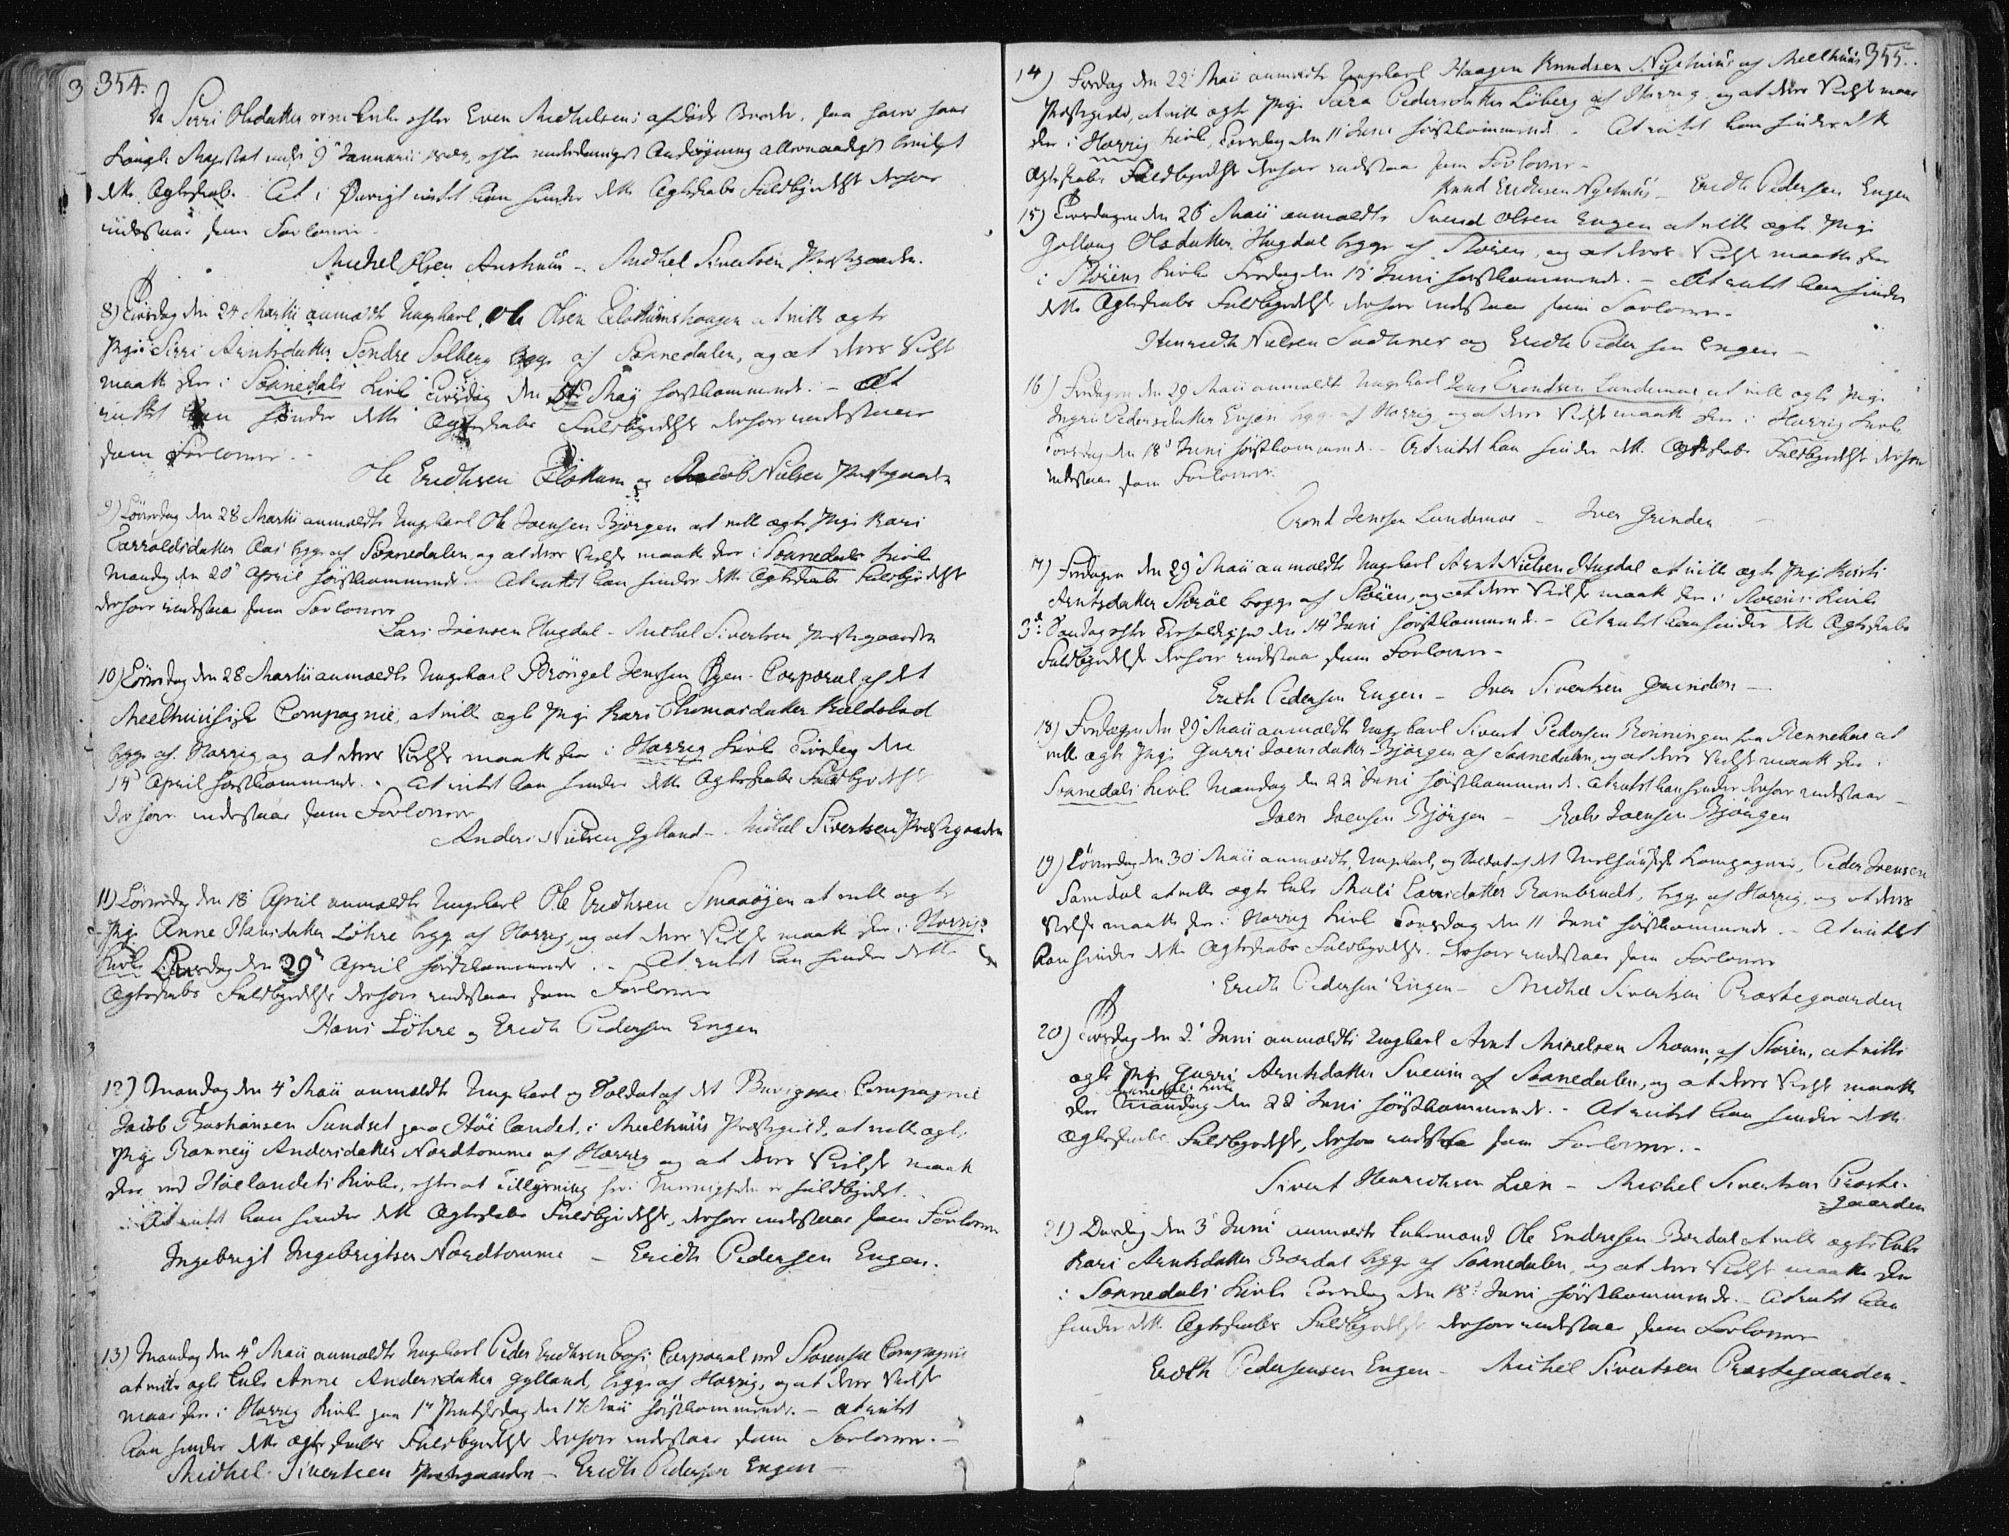 354.
Da Sirri Olsdatter er en Enke efter Even Michelsens afdøde Broder, saa haver hans
Kongl: Majestæt under 9de Januarii efter underdanigst Ansøgning allernaadigst bevilget
dette Ægteskab. At i Øvrigt intet kan hindre dette Ægteskabs Fuldbyrdelse derfore
indestaae som Forlovere
Michel Olsen Aushuus - Michel Sivertsen Præstgaarden.
8) Tirsdag den 24 Martii anmældte Ungkarl Ole Olsen Flottumshaugen at ville ægte
Pige Sirri Arntsdatter Søndre Solberg begge af Soknedalen, og at deres Vielse
maatte skee i Soknedals Kirke Tirsdag den May førstkommende. - At
intet kan hindre dette Ægteskabs Fuldbyrdelse derfore indestaaer
som Forlovere.
Ole Erichsen Flottum og Jacob Nielsen Præstgaarden
9) Løverdag den 28 Martii anmældte Ungkarl Ole Joensen Bjørgen at ville ægte Pige Kari
Tarraldsdatter Aas begge af Soknedalen, og at deres Vielse maatte skee i Soknedals Kirke
Mandag den 20de April førstkommende. At intet kan hindre dette Ægteskabs Fuldbyrdelse
derfore indestaae som Forlovere
Lars Joensen Hugdal - Michel Sivertsen Præstegaarden
10) Løverdag den 28 Martii anmældte Ungkarl Brøngel Jensen Øyen - Corporal af det
Meelhuusiske Compagnie, at ville ægte Pige Kari Thomasdatter Kaldvand
begge af Horrig og at deres Vielse maatte skee i Horrig Kirke Tirsdag den
14de April førstkommende. - At intet kan hindre dette Ægteskabs Fuldbyrdelse
derfore indestaae som Forlovere
Anders Nielsen Gylland - Michel Sivertsen Præstegaarden
11) Løverdag den 18 April anmældte Ungkarl Ole Erichsen Smaaøyen at ville ægte
Pige Anne Hansdatter Løhre begge af Horrig, og at deres Vielse maatte skee i Horrig
Kirke den 29de April førstkommende. - At intet kan hindre dette
Ægteskabs Fuldbyrdelse derfore indestaae som Forlovere
Hans Løhre og Erich Pedersen Engen
12) Mandag den 4de Maii anmældte Ungkarl og Soldat af det Compagnie
Jacob Sundset paa Høilandet, i Meelhuus Præstegield, at ville ægte
Pige Ranney Andersdatter Nordtomme af Horrig og at deres Vielse maatte
skee ved Høelandets Kirke, efter at Tillysning her i Menigheden er fuldbyrdet.
At intet kan hindre dette Ægteskabs Fuldbyrdelse, derfore indestaae som Forlovere
Ingebrigt Ingebrigtsen Nordtomme - Erich Pedersen Engen.
13) Mandag den 4de Maii anmældte Ungkarl Peder Erichsen Corporal ved Størenske Compagnie
at ville ægte Enke Anne Andersdatter Gylland, begge af Horrig, og at deres Vielse
maae skee i Horrig Kirke paa 1ste Pintsedag den 17 Maii førstkommende. - At intet
kan hindre dette Ægteskabs Fuldbyrdelse derfore indestaae som Forlovere. -
Michel Sivertsen Præstegaarden - Erich Pedersen Engen -
355.
14) Fredag den 22de Maii anmældte Ungkarl Haagen Knudsen Nyehuus af Meelhuus
Præstegield, at ville ægte Pige Sara Pedersdatter Løberg af Horrig og at deres Vielse maae
skee i Horrig Kirke, Torsdag den 11te Juni førstkommende. - At intet kan hindre dette
Ægteskabs Fuldbyrdelse derfore indestaae som Forlovere -
Knud Erichsen Nyehuus - Erich Pedersen Engen
15) Tirsdagen den 26 Maii anmældte Svend Olsen Engen at ville ægte Pige
Gollaug Olsdatter Hugdal begge af Støren, og at deres Vielse maatte skee
i Størens Kirke Fredag den Juni førstkommende. - At intet kan hindre
dette Ægteskabs Fuldbyrdelse derfore indestaae som Forlovere.
Henrich Nielsen og Erich Pedersen Engen -
16) Fredagen den 29 Maii anmældte Ungkarl Jens Trondsen Lundemoe at ville ægte Pige
Ingri Pedersdatter Evjen begge af Horrig og at deres Vielse maatte skee i Horrig Kirke
Torsdag den 18de Juni førstkommende. - At intet kan hindre dette Ægteskabs Fuldbyrdelse derfore
indestaae som Forlovere.
Trond Jensen Lundemoe - Iver Grinden -
17) Fredagen den 29de Maii anmældte Ungkarl Arnt Nielsen Hugdal at ville ægte Pige Kirsti
Arntsdatter Storøe begge af Støren, og at deres Vielse maatte skee i Størens Kirke
3de Søndag efter den 14de Juni førstkommende. - At intet kan hindre dette Ægteskabs
Fuldbyrdelse derfore indestaae som Forlovere -
Erich Pedersen Engen - Iver Sivertsen Grinden -
18) Fredagen den 29de Maii anmældte Ungkarl Sivert Pedersen Rønningen fra Rennebue at
ville ægte Pige Gurri Joensdatter Bjørgen af Soknedalen, og at deres Vielse maatte skee i
Soknedals Kirke Mandag den 22de Juni førstkommende. At intet kan hindre derfore indestaaer -
Joen Joensen Bjørgen - Joensen Bjørgen
19) Løverdag den 30 Maii anmældte Ungkarl, og Soldat af det Meelhuusiske Compagnie, Peder Joensen
Samdal at ville ægte Enke Mali Larsdatter Rambraut, begge af Horrig, og at deres
Vielse maatte skee i Horrig Kirke Torsdag den 11 Juni førstkommende. - At intet
kan hindre dette Ægteskabs Fuldbyrdelse. derfore indestaae som Forlovere
Erich Pedersen Engen - Michel Sivertsen Præstegaarden
20) Tirsdag den 2de Juni anmældte Ungkarl Arnt Mikkelsen Moum, af Støren, at ville
ægte Pige Gurri Arntsdatter af Soknedalen, og at deres Vielse maatte
skee i Soknedals Kirke Mandag den 22de Juni førstkommende. - At intet kan hindre dette
Ægteskabs Fuldbyrdelse, derfore indestaae som Forlovere. -
Sivert Henrichsen Lien - Michel Sivertsen Præste-
gaarden
21) Onsdag den 3de Juni anmældte Enkemand Ole Endresen Bordal at ville ægte Enke
Kari Arntsdatter Bordal begge af Soknedalen, og at deres Vielse maatte skee
i Soknedals Kirke Torsdag den 18de Juni førstkommende. - At intet kan
hindre dette Ægteskabs Fuldbyrdelse derfore indestaae som Forlovere
Erich Pedersen Engen - Michel Sivertsen Præstegaarden -